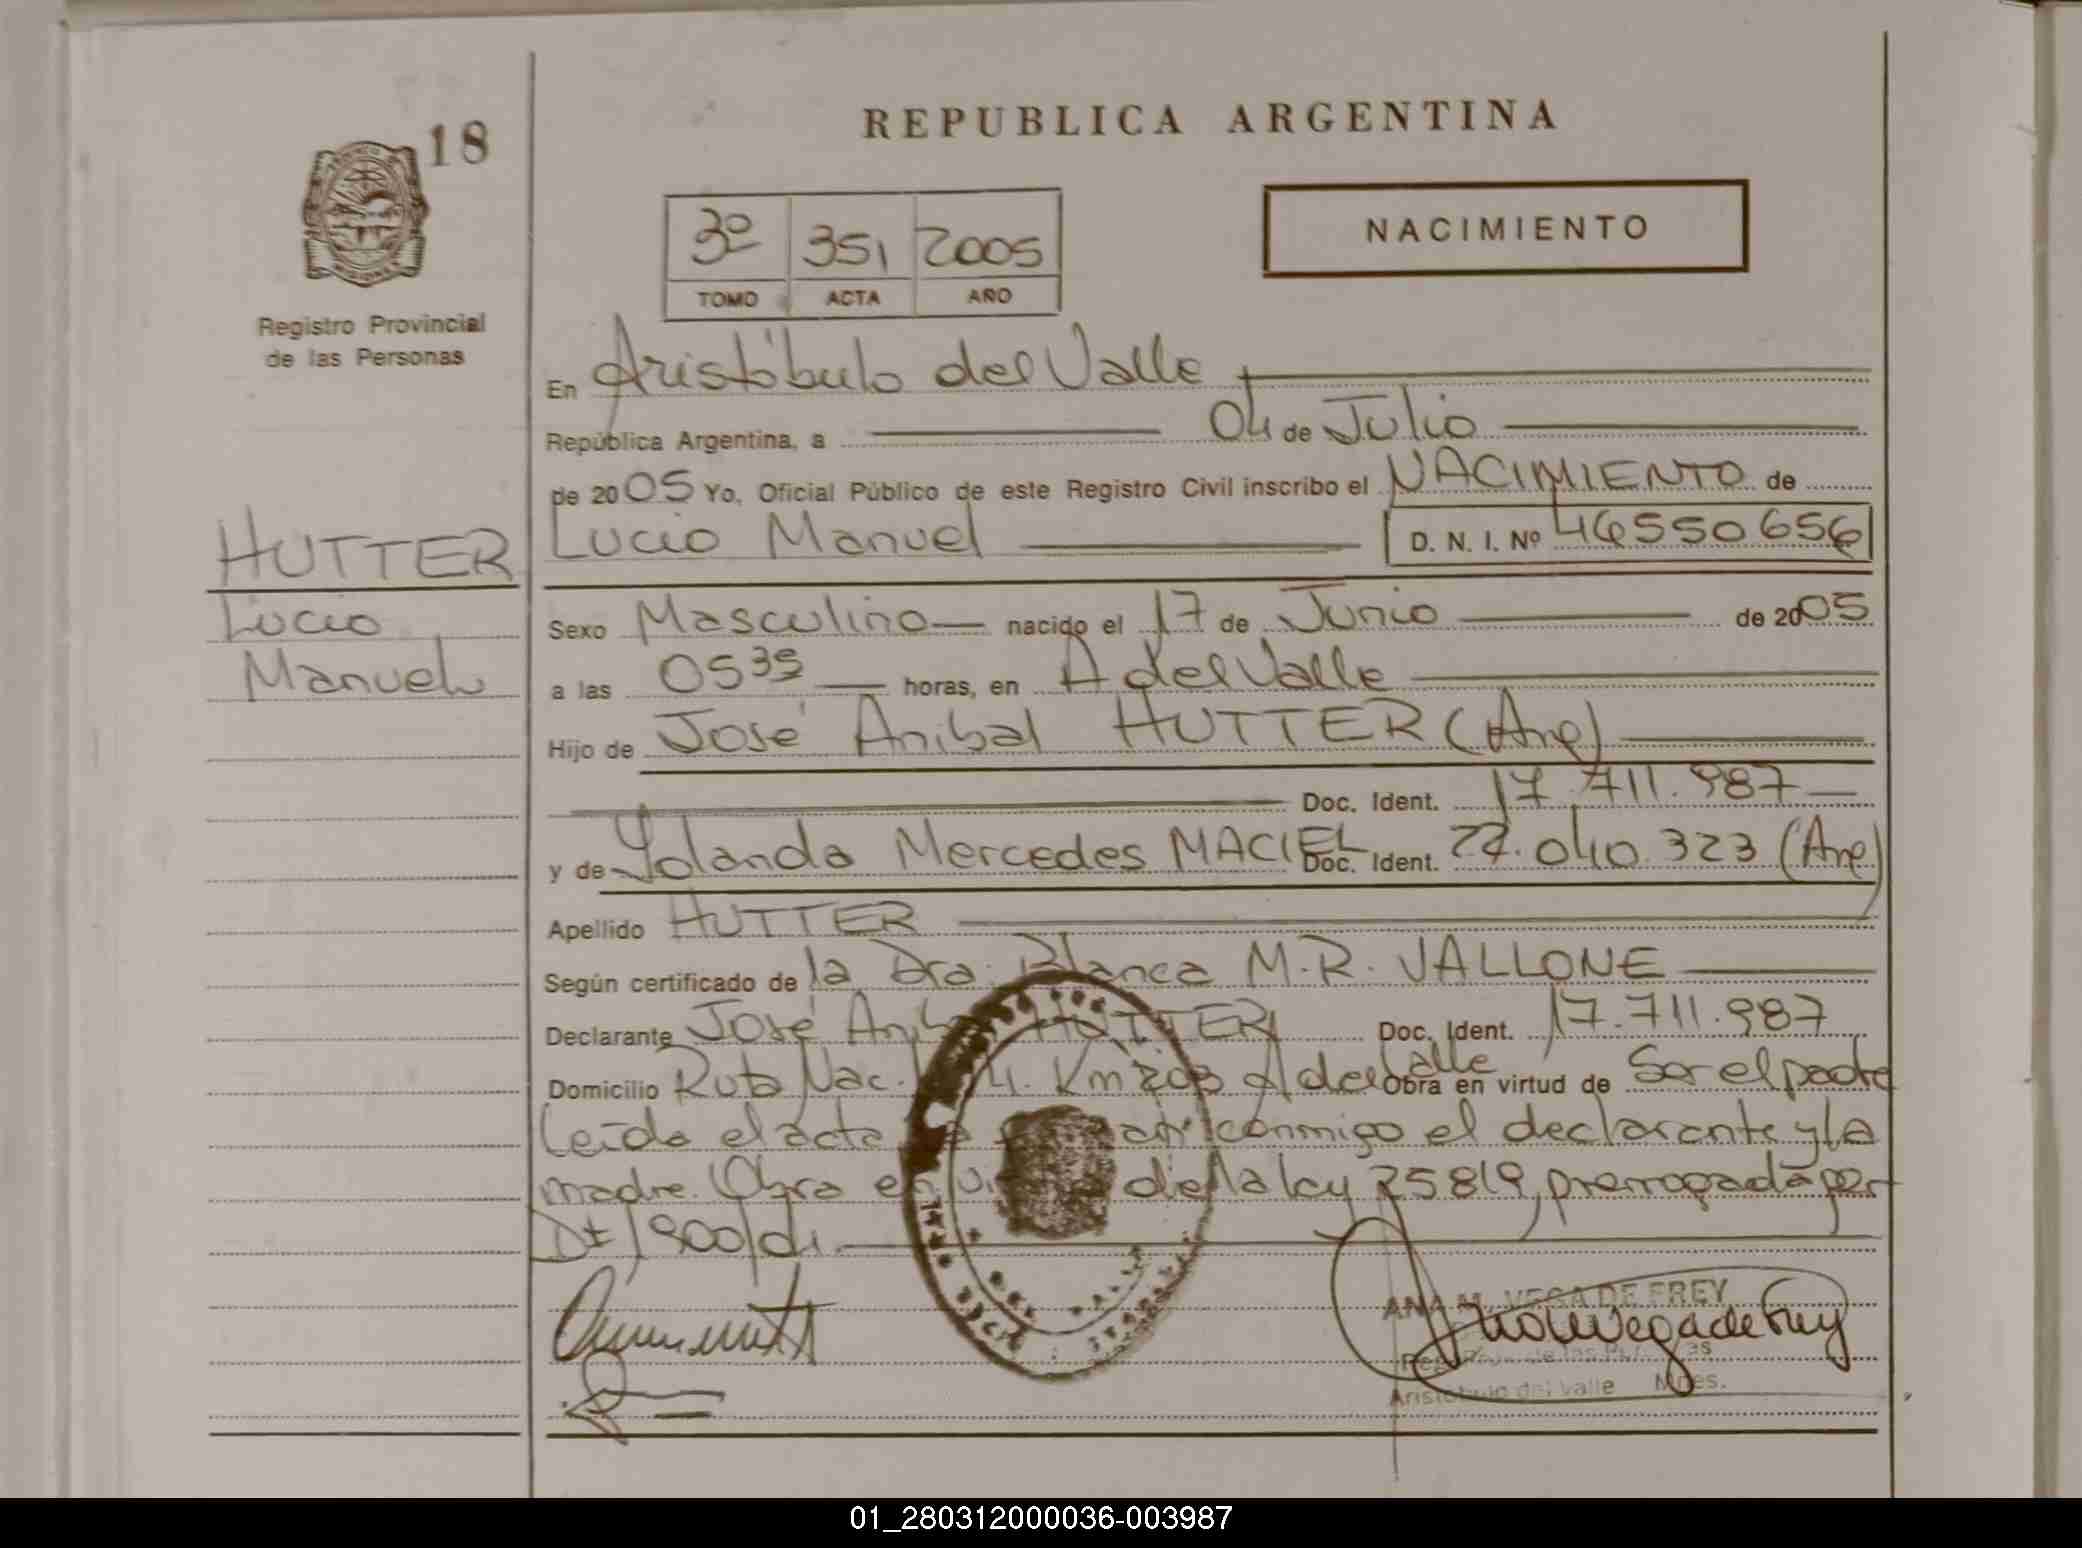 18
REPUBLICA ARGENTINA
NACIMIENTO
3º 351 2005
TOMO ACTA AÑO
Registro Provincial
de las Personas
En Aristóbulo del Valle
República Argentina, a 04 de Julio
de 2005 Yo, Oficial Público de este Registro Civil inscribo el NACIMIENTO de
HUTTER
Lucio
Manuel
Lucio Manuel D. N. I. Nº 46550656
Sexo Masculino nacido el 17 de Junio de 2005
a las 0535 horas, en A del Valle
Hijo de José Anibal HUTTER (Arg)
Doc. Ident. 17.711.987
y de Yolanda Mercedes MACIEL Doc. Ident. 22.040.323 (Arg)
Apellido HUTTER
Según certificado de la Dra. Blanca M.R. VALLONE
Declarante José Anibal HUTTER Doc. Ident. 17.711.987
Domicilio Ruta Nac. 14. Km 203 A del Valle Obra en virtud de Ser el padre
Leída el acta conmigo el declarante y la
madre. Obra en de la ley 25819, prorrogada por
Dt 1900/04
ANA M. VEGA DE FREY
Aristóbulo del Valle Mnes.
01_280312000036-003987